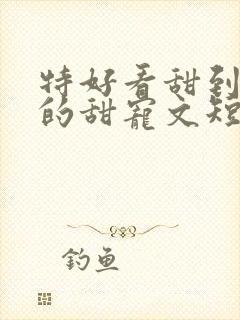 特好看甜到
的甜宠文短
钓鱼